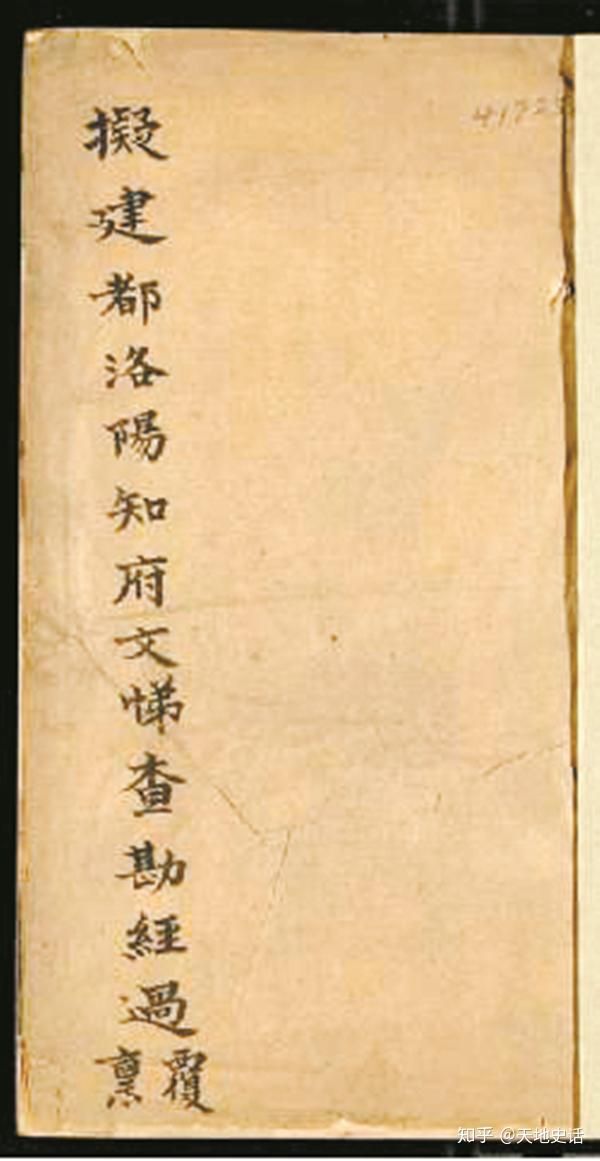 41725
擬建都洛陽知府文悌查勘經過
覆稟
知乎 @天地史话